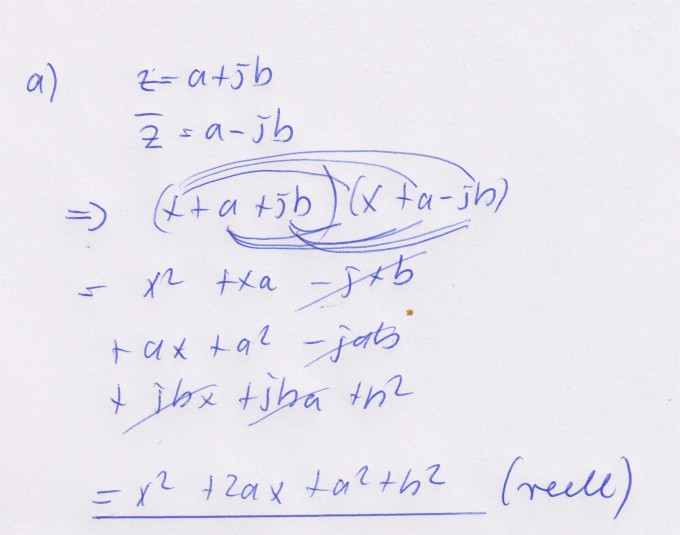 a) z = a+jb
z̅ = a-jb
=> (x+a+jb)(x+a-jb)
= x² +xa -jxb
+ax +a² -jab
+jbx +jba +b²
= x² +2ax +a²+b² (reell)